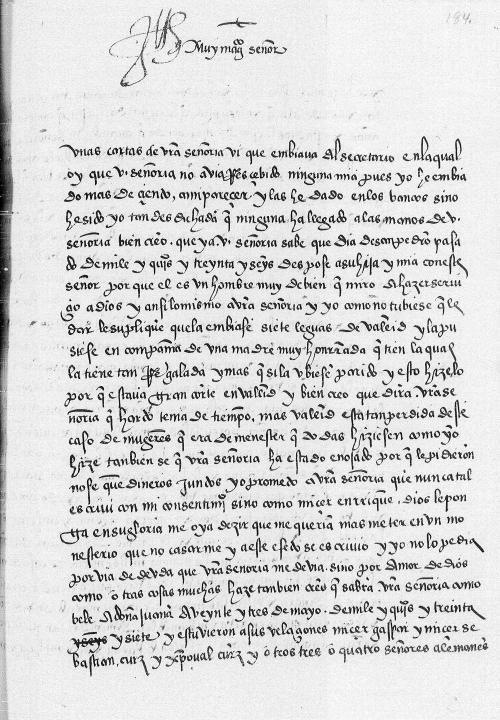 184.
Muy mag^co señor
vnas cartas de vra señoria vi que embiaua Al secretario en la qual
oy que v. señoria no avia Resçebido ninguna mia pues yo he embia
do mas de çiendo, a mi pareçer y las he dado en los bancos sino
he sido yo tan desdichada q̃ ninguna ha llegado a las manos de v.
señoria bien creo. que ya v. señoria sabe que dia de san pedro pasa
do de mile y quis y treynta y seys despose a su hija y mia con este
señor por que el es vn hombre muy de bien q̃ miro A hazer serui
çio a dios y ansi lo mismo A vra señoria y yo como no tubiese q̃ le
dar le suplique que la embiase siete leguas de valld y la pu
siese en compañia de vna madre muy honrrada q̃ tien la qual
la tiene tan Regalada y mas q̃ si la vbiese parido y esto hizelo
por q̃ estaua gran corte en valld y bien creo que dira. vra se
ñoria q̃ hardo tenia de tiempo, mas valld esta tan perdida deste
caso de mugeres q̃ era de menester q̃ todas hiziesen como yo
hize tanbien se q̃ vra señoria ha estado enojado por q̃ le pidieron
no se que dineros Jundos yo prometo A vra señoria que nunca tal
escriui con mi consentimi^o sino como miçer enrrique, dios le pon
ga en su gloria me oya dezir que me queria mas meter en vn mo
nesterio que no casarme y a este efedo se escriuio y yo no lo pedia
por via de deuda que vra señoria me devia. sino por Amor de dios
como o tras cosas muchas haze tanbien creo q̃ sabra vra señoria como
vele A doña Juana A veynte y tres de mayo. de mile y quis y treinta
y seys y siete y estuvieron a sus velaçones miçer gaspar y miçer se
bastian, curz y xpoual curz y o tros tres o quatro señores alemones